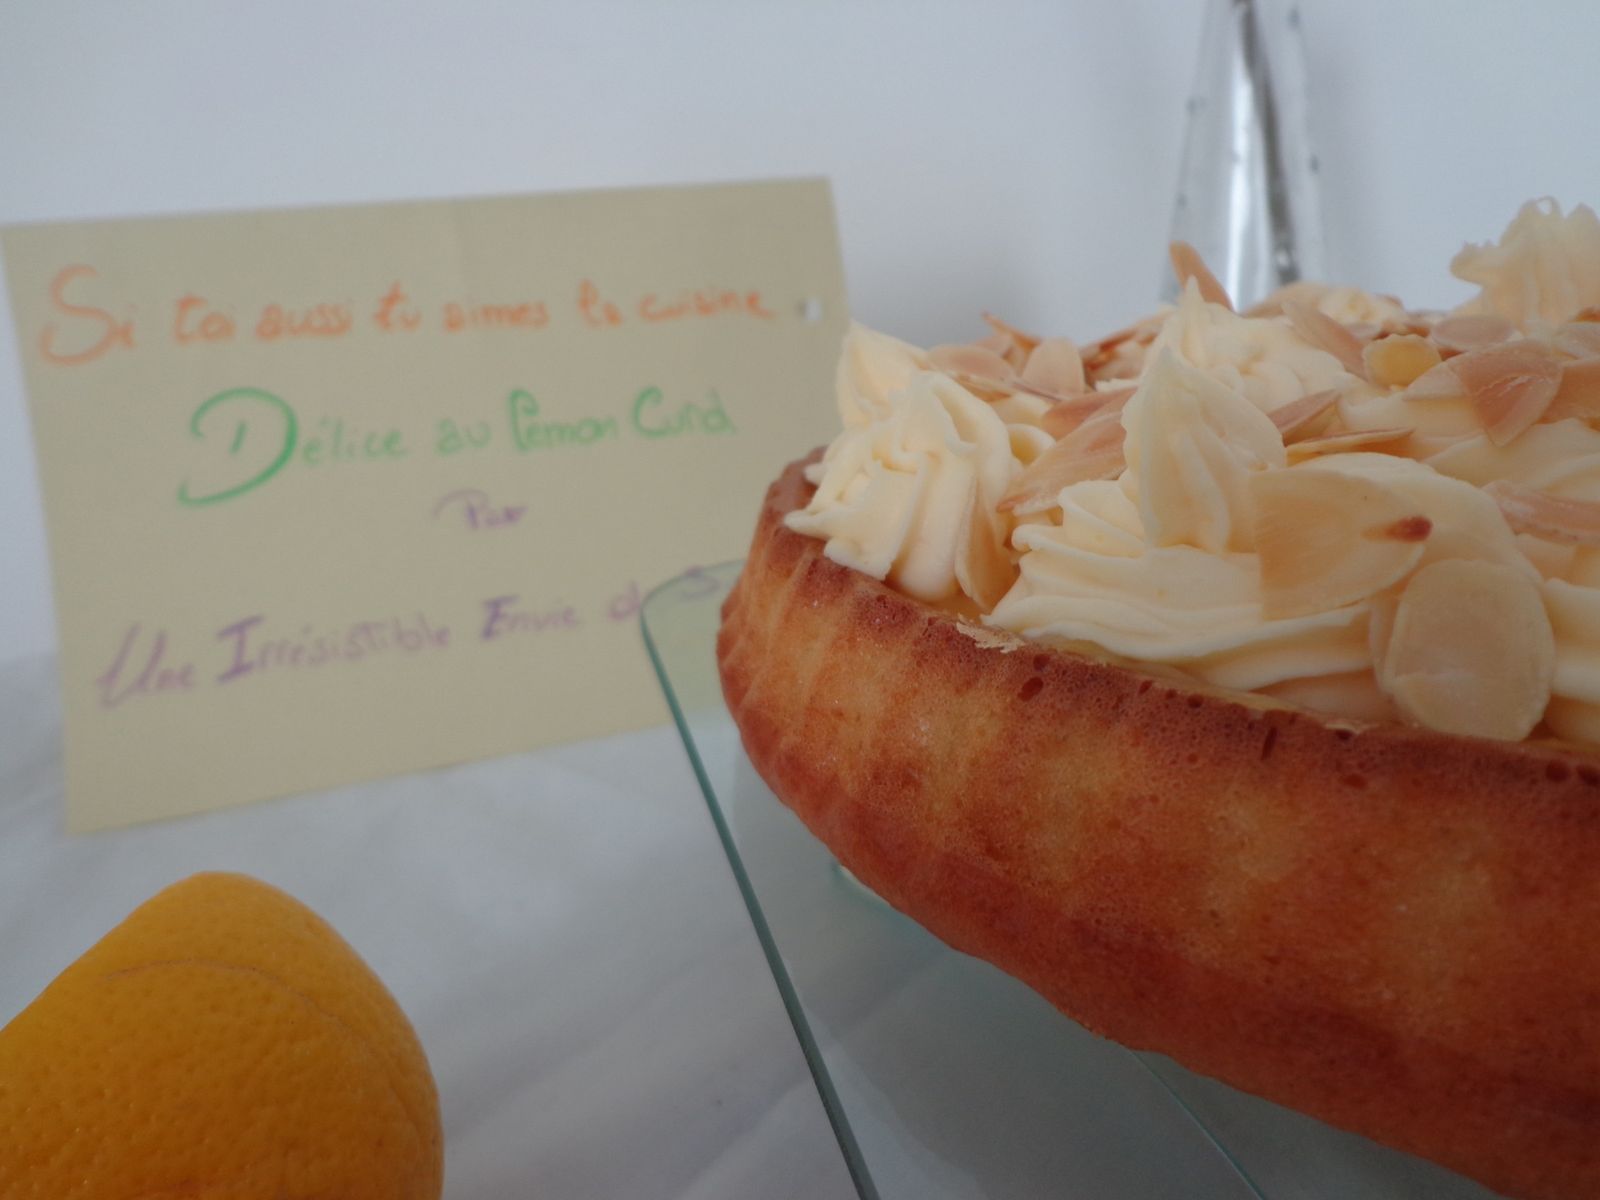 Si toi aussi tu aimes la cuisine
Délice au Lemon Curd
Par
Une Irrésistible Envie